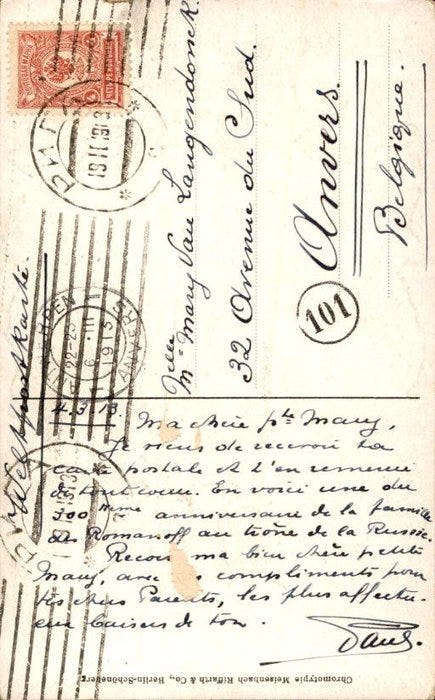 Weltpostkarte
Melle Mary Van Langendonck.
32 Avenue du Sud.
Anvers.
Belgique.
101
РИГА
ANVERS
6 III
1913
4.3.13.
Ma chère pte Mary,
Je viens de recevoir ta
carte postale et t'en remercie
de tout cœur. En voici une du
300ème anniversaire de la famille
des Romanoff au trône de la Russie.
Recois ma bien chère petite
Mary, avec compliments pour
tes chers Parents, les plus affectu-
eux baisers de ton.
Paul.
Chromotypie Meisenbach Riffarth & Co., Berlin-Schöneberg